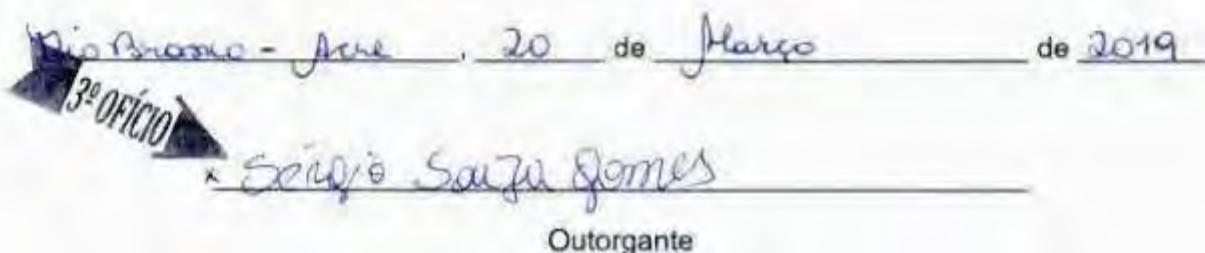 Rio Branco - Acre, 20 de Março de 2019
3º OFÍCIO
x Sérgio Souza Gomes
Outorgante